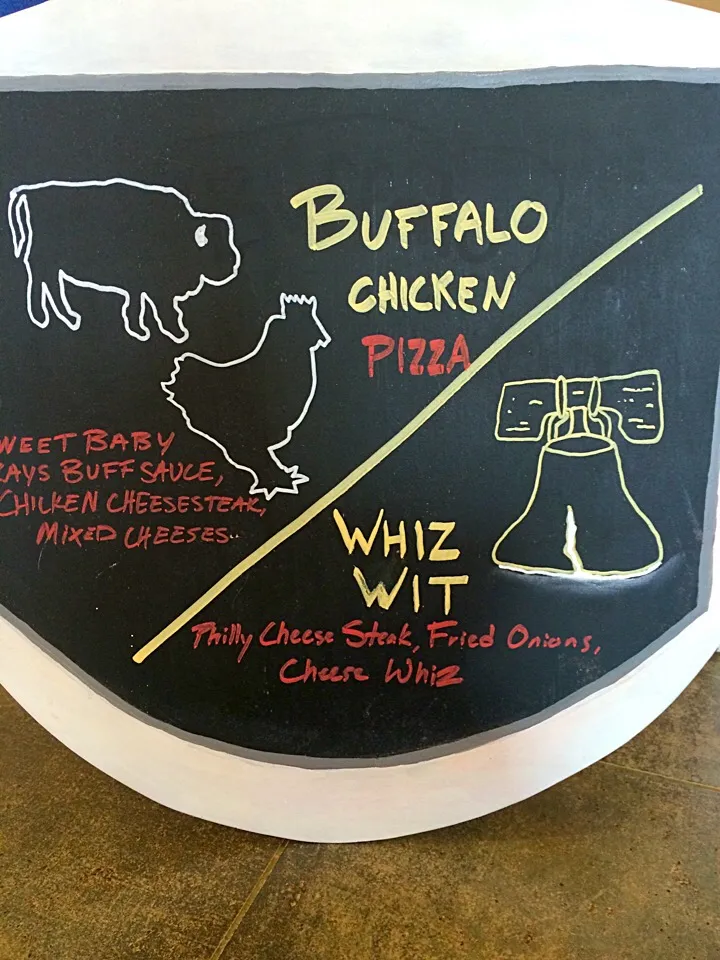 BUFFALO
CHICKEN
PIZZA
WEET BABY
RAYS BUFF SAUCE,
CHICKEN CHEESESTEAK,
MIXED CHEESES..
WHIZ
WIT
Philly Cheese Steak, Fried Onions,
Cheese Whiz